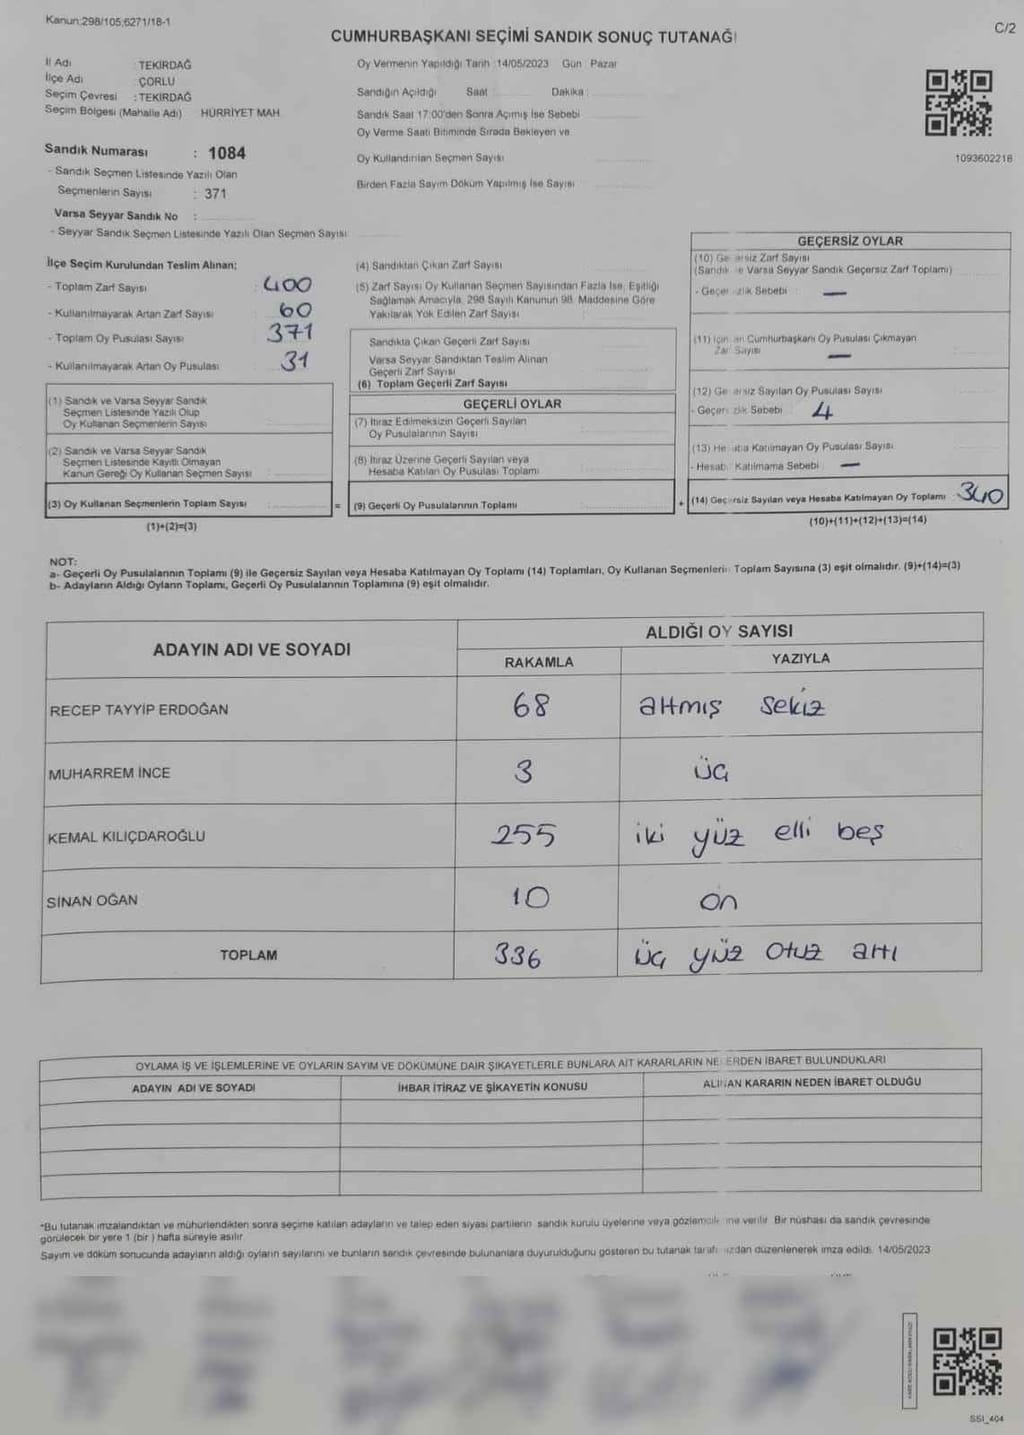 Kanun:298/105;6271/18-1
C/2
CUMHURBAŞKANI SEÇİMİ SANDIK SONUÇ TUTANAĞI
İl Adı : TEKİRDAĞ
İlçe Adı : ÇORLU
Seçim Çevresi : TEKİRDAĞ
Seçim Bölgesi (Mahalle Adı) HÜRRİYET MAH.
Sandık Numarası : 1084
- Sandık Seçmen Listesinde Yazılı Olan
Seçmenlerin Sayısı : 371
Varsa Seyyar Sandık No :
- Seyyar Sandık Seçmen Listesinde Yazılı Olan Seçmen Sayısı:
Oy Vermenin Yapıldığı Tarih :14/05/2023 Gün : Pazar
Sandığın Açıldığı Saat Dakika :
Sandık Saat 17:00'den Sonra Açımış İse Sebebi
Oy Verme Saati Bitiminde Sırada Bekleyen ve
Oy Kullandırılan Seçmen Sayısı
Birden Fazla Sayım Döküm Yapılmış İse Sayısı
1093602218
İlçe Seçim Kurulundan Teslim Alınan;
- Toplam Zarf Sayısı : 400
- Kullanılmayarak Artan Zarf Sayısı : 60
- Toplam Oy Pusulası Sayısı : 371
- Kullanılmayarak Artan Oy Pusulası : 31
(1) Sandık ve Varsa Seyyar Sandık
Seçmen Listesinde Yazılı Olup
Oy Kullanan Seçmenlerin Sayısı :
(2) Sandık ve Varsa Seyyar Sandık
Seçmen Listesinde Kayıtlı Olmayan
Kanun Gereği Oy Kullanan Seçmen Sayısı :
(3) Oy Kullanan Seçmenlerin Toplam Sayısı :
(1)+(2)=(3)
(4) Sandıktan Çıkan Zarf Sayısı :
(5) Zarf Sayısı Oy Kullanan Seçmen Sayısından Fazla İse, Eşitliği
Sağlamak Amacıyla, 298 Sayılı Kanunun 98. Maddesine Göre
Yakılarak Yok Edilen Zarf Sayısı :
Sandıkta Çıkan Geçerli Zarf Sayısı :
Varsa Seyyar Sandıktan Teslim Alınan
Geçerli Zarf Sayısı :
(6) Toplam Geçerli Zarf Sayısı :
GEÇERLİ OYLAR
(7) İtiraz Edilmeksizin Geçerli Sayılan
Oy Pusulalarının Sayısı :
(8) İtiraz Üzerine Geçerli Sayılan veya
Hesaba Katılan Oy Pusulası Toplamı :
= (9) Geçerli Oy Pusulalarının Toplamı : +
GEÇERSİZ OYLAR
(10) Ge ersiz Zarf Sayısı
(Sandık e Varsa Seyyar Sandık Geçersiz Zarf Toplamı) :
- Geçer zlik Sebebi : —
(11) İçin an Cumhurbaşkanı Oy Pusulası Çıkmayan
Zar Sayısı —
(12) Ge ersiz Sayılan Oy Pusulası Sayısı
- Geçer zlik Sebebi : 4
(13) He aba Katılmayan Oy Pusulası Sayısı
- Hesab Katılmama Sebebi : —
(14) Geçersiz Sayılan veya Hesaba Katılmayan Oy Toplamı : 340
(10)+(11)+(12)+(13)=(14)
NOT:
a- Geçerli Oy Pusulalarının Toplamı (9) ile Geçersiz Sayılan veya Hesaba Katılmayan Oy Toplamı (14) Toplamları, Oy Kullanan Seçmenlerin Toplam Sayısına (3) eşit olmalıdır. (9)+(14)=(3)
b- Adayların Aldığı Oyların Toplamı, Geçerli Oy Pusulalarının Toplamına (9) eşit olmalıdır.
ADAYIN ADI VE SOYADI
ALDIĞI OY SAYISI
RAKAMLA YAZIYLA
RECEP TAYYİP ERDOĞAN 68 altmış sekiz
MUHARREM İNCE 3 üç
KEMAL KILIÇDAROĞLU 255 iki yüz elli beş
SİNAN OĞAN 10 on
TOPLAM 336 üç yüz otuz altı
OYLAMA İŞ VE İŞLEMLERİNE VE OYLARIN SAYIM VE DÖKÜMÜNE DAİR ŞİKAYETLERLE BUNLARA AİT KARARLARIN NELERDEN İBARET BULUNDUKLARI
ADAYIN ADI VE SOYADI İHBAR İTİRAZ VE ŞİKAYETİN KONUSU ALINAN KARARIN NEDEN İBARET OLDUĞU
*Bu tutanak imzalandıktan ve mühürlendikten sonra seçime katılan adayların ve talep eden siyasi partilerin sandık kurulu üyelerine veya gözlemcilerine verilir. Bir nüshası da sandık çevresinde
görülecek bir yere 1 (bir ) hafta süreyle asılır.
Sayım ve döküm sonucunda adayların aldığı oyların sayılarını ve bunların sandık çevresinde bulunanlara duyurulduğunu gösteren bu tutanak tarafımızdan düzenlenerek imza edildi. 14/05/2023
SSİ_404